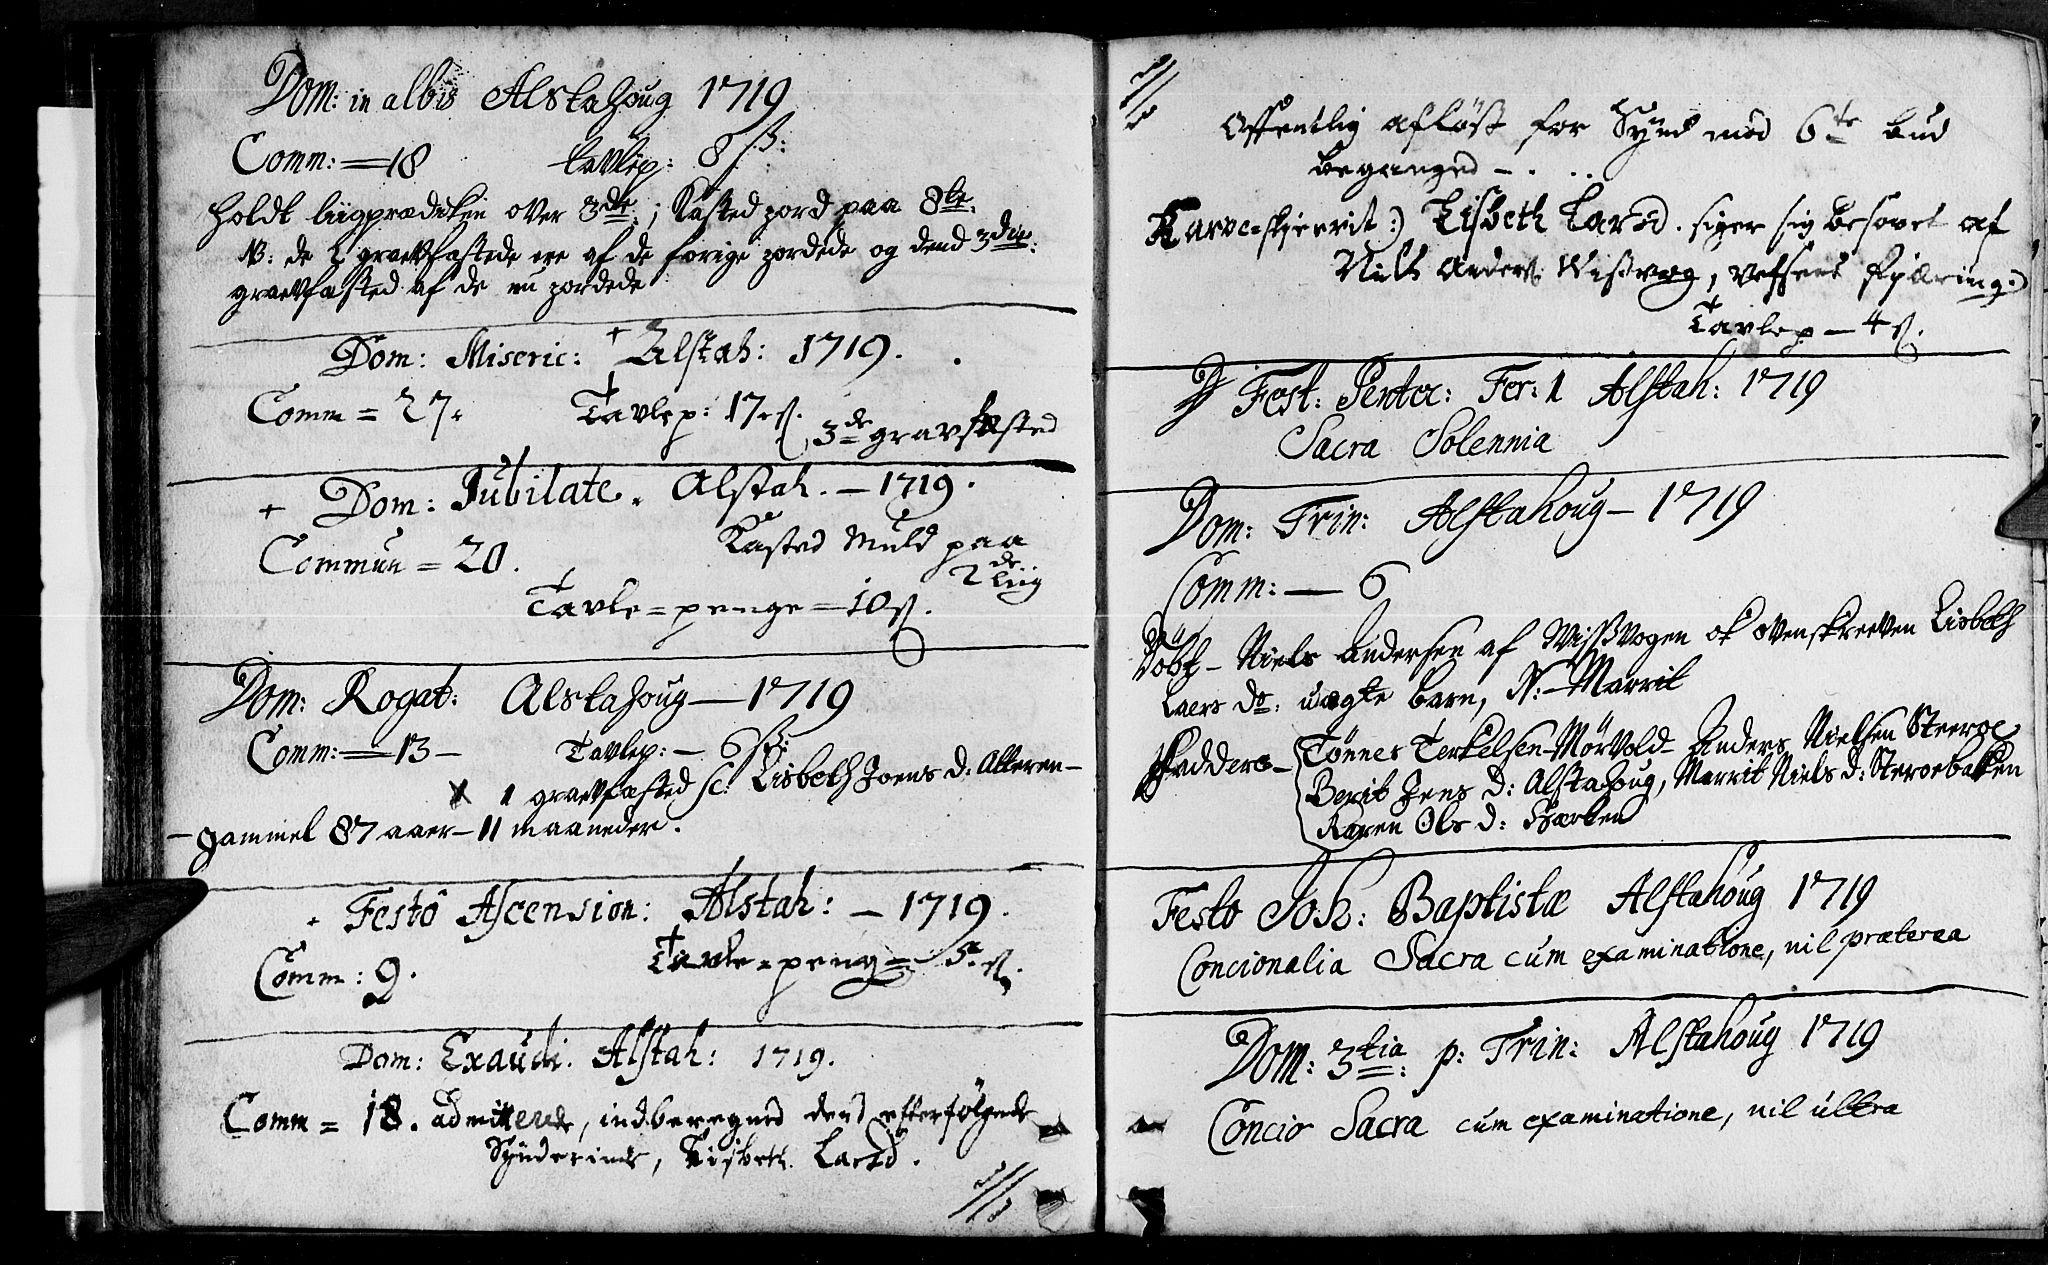 Dom: in albis Alstahoug 1719
Comm: = 18 tavlep: 8 ß:
holdt liigprædiken over 3de; Kasted jord paa 8te.
N: de 2 graefæstede ere af de forige jordede og dend 3die:
graefæsted af de nu jordede
Dom: Miseric: + Alstah: 1719.
Comm = 27. Tavlep: 17 ß. 3de gravfæsted
+ Dom: Jubilate. Alstah. – 1719.
Commun = 20. Kasted Muld paa
2de liig
Tavle=penge = 10 ß.
Dom: Rogat: Alstahoug — 1719
Comm: = 13 – Tavlep: – 6 ß:
1 graefæsted sc: Lisbeth Joens d: Alteren –
– gammel 87 aaer – 11 maaneder.
Festo Ascension: Alstah: – 1719.
Comm: 9. Tavle=peng = 5 ß.
Dom: Exaudi. Alstah: 1719.
Comm = 18. admitterede, indberegned dend efterfølgende
Synderinde, Lisbeth Larsd.
Offentlig afløst for Synd mod 6te bud
begangned – . . .
Lisbeth Larsd. siger sig besovet af
Niels Anders: Wistvog, Vefsens fjæring.)
Tavlep – 4 ß.
Fest: Pentec: Fer: 1 Alstah: 1719
Sacra Solennia
Dom: Trin: Alstahoug – 1719
Comm: — 6
Döbt – Niels Andersen af Wistvogen ok ovenskreven Lisbeth
Laers do: uægte barn, N: – Marrit
Fadders – Tønnes Terkelsen – Mørvold – Anders Nielsen Steeroe
Berit Jens d: Alstahoug, Marrit Niels d: Steroebakken
Karen Ols d:
Festo Joh: Baptistæ Alstahoug 1719
Concionalia Sacra cum examinatione, nil præterea
Dom: 3tia p: Trin: Alstahoug 1719
Concio Sacra cum examinatione, nil ultra